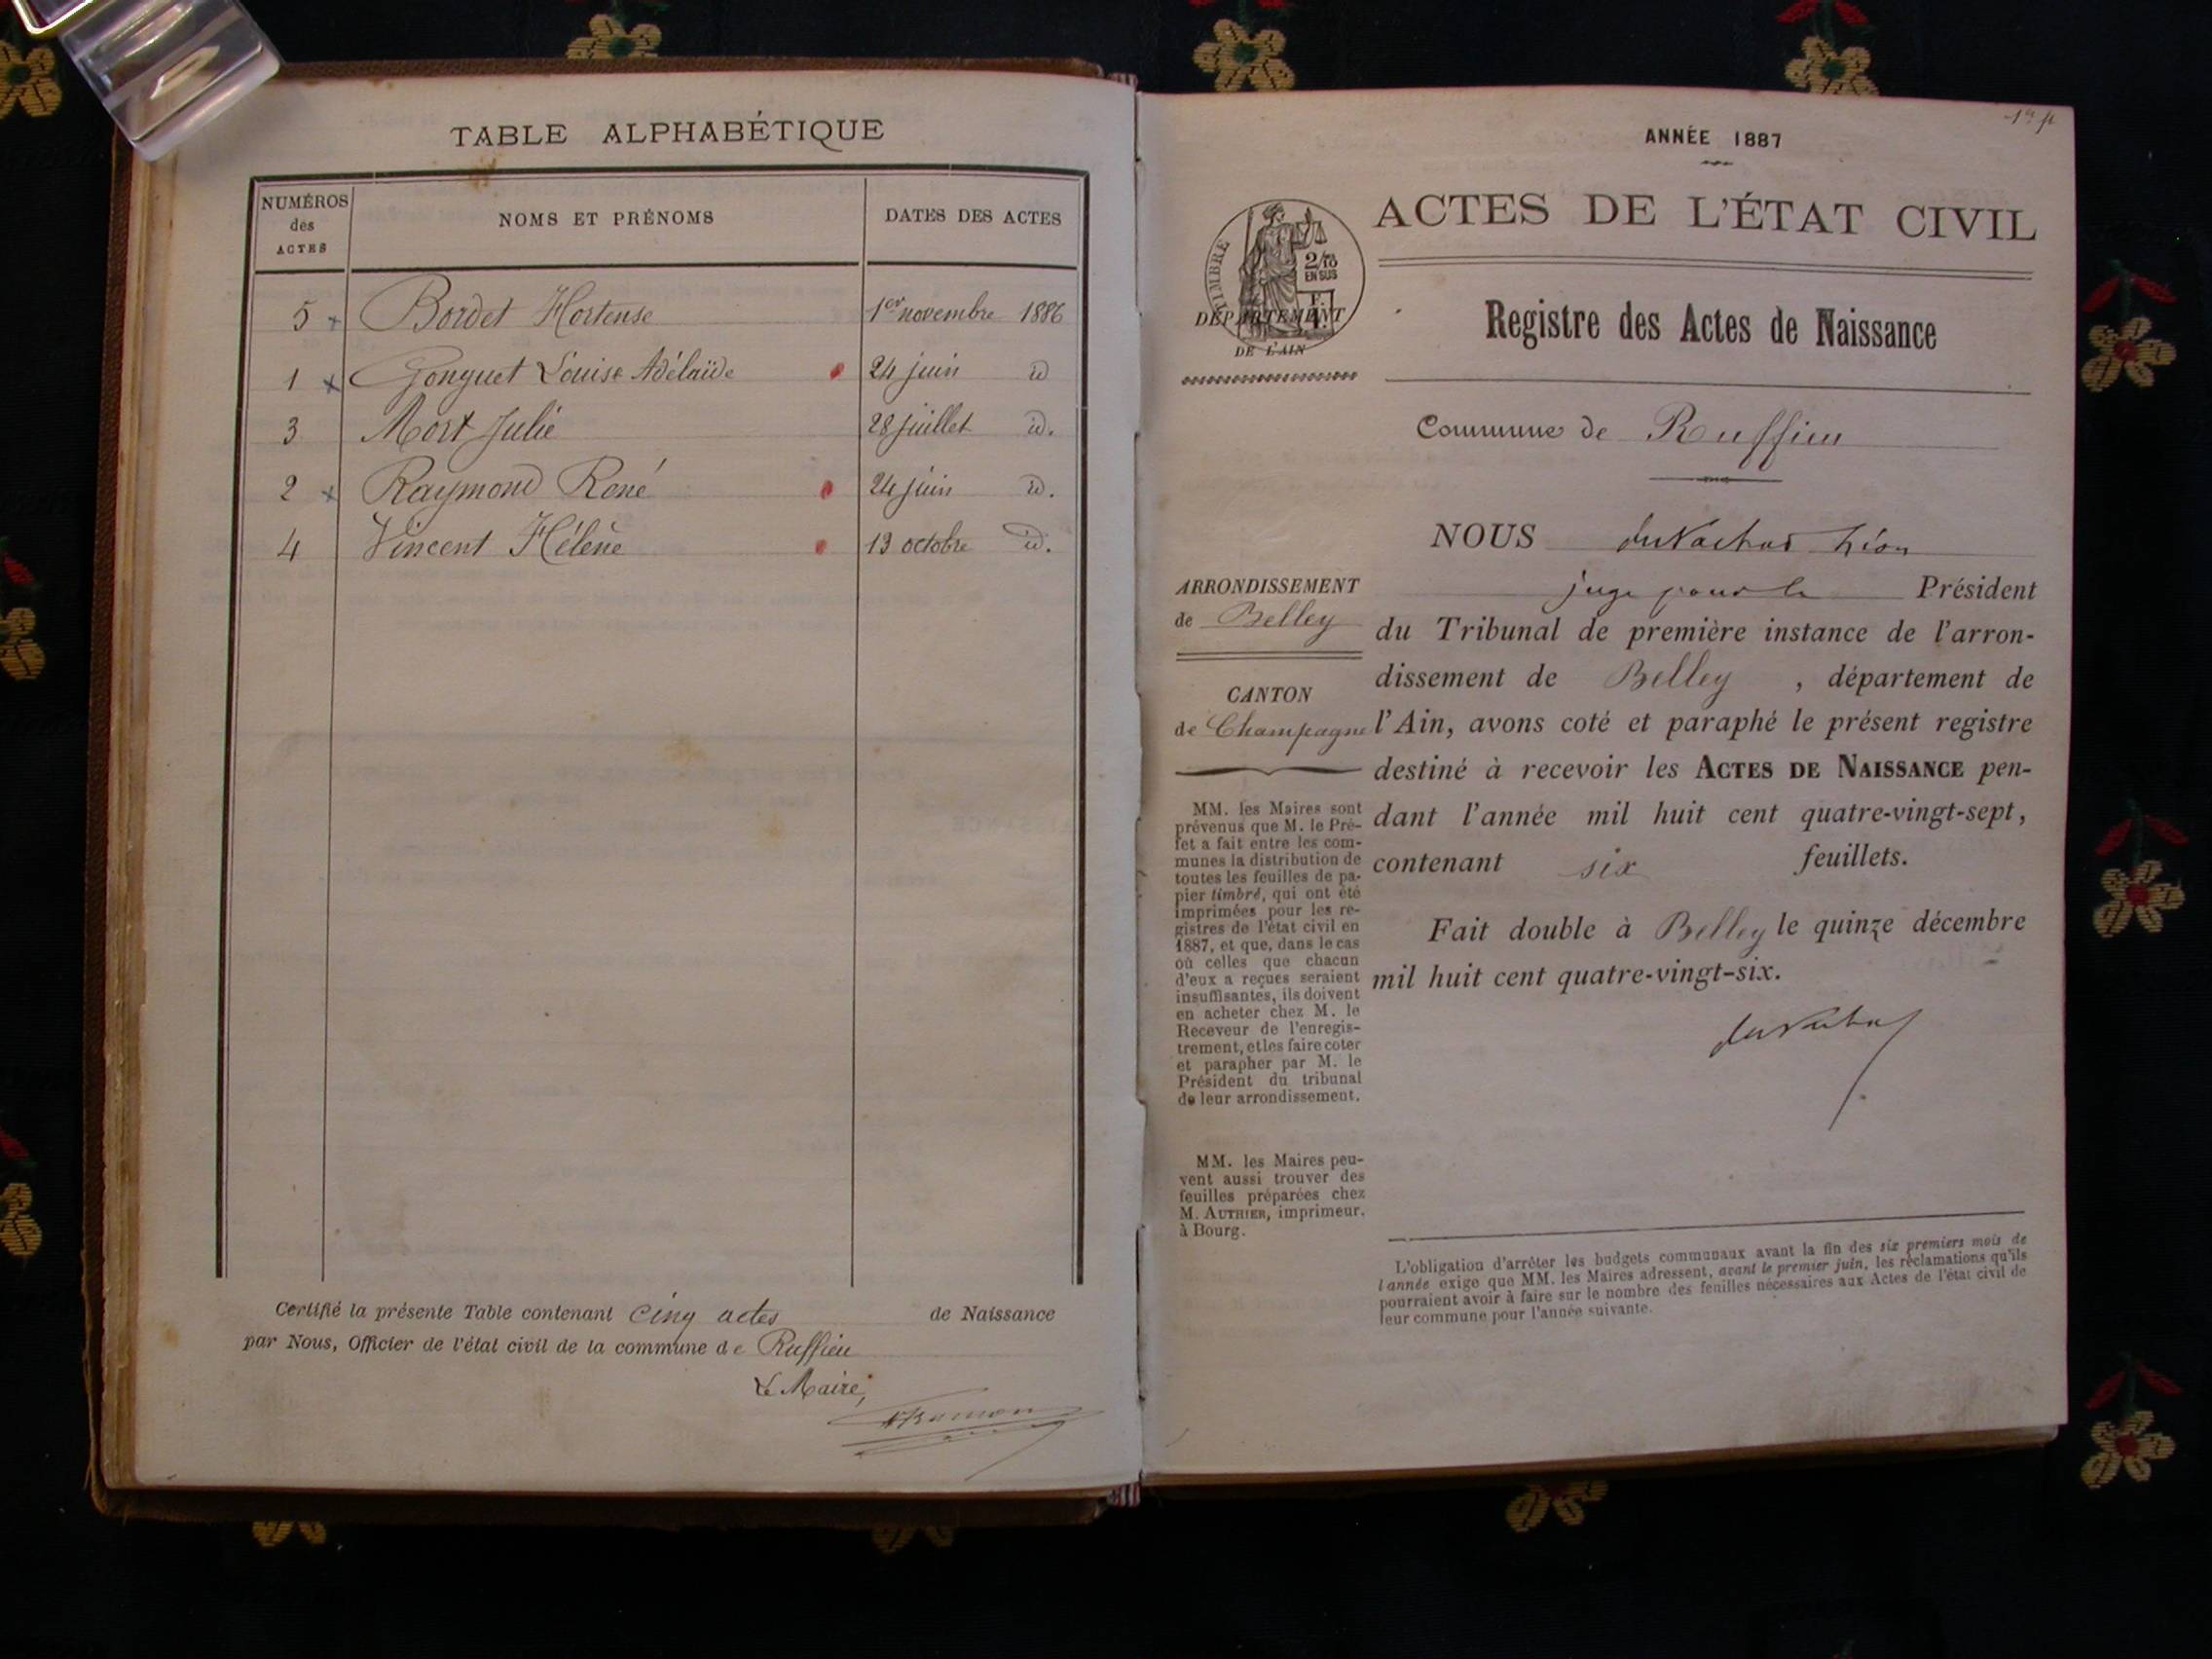 TABLE ALPHABÉTIQUE
NUMÉROS des ACTES NOMS ET PRÉNOMS DATES DES ACTES
5 Bordet Hortense 1er novembre 1886
1 Gonguet Louise Adélaïde 24 juin id
3 Mort Julie 28 juillet id.
2 Raymond René 24 juin id.
4 Vincent Hélène 13 octobre id.
Certifié la présente Table contenant cinq actes de Naissance
par Nous, Officier de l'état civil de la commune de Ruffieu
Le Maire,
ANNÉE 1887
ACTES DE L'ÉTAT CIVIL
TIMBRE
2/10
EN SUS
DÉPARTEMENT
DE L'AIN
Registre des Actes de Naissance
Commune de Ruffieu
ARRONDISSEMENT
de Belley
CANTON
de Champagne
MM. les Maires sont
prévenus que M. le Pré-
fet a fait entre les com-
munes la distribution de
toutes les feuilles de pa-
pier timbré, qui ont été
imprimées pour les re-
gistres de l'état civil en
1887, et que, dans le cas
où celles que chacun
d'eux a reçues seraient
insuffisantes, ils doivent
en acheter chez M. le
Receveur de l'enregis-
trement, et les faire coter
et parapher par M. le
Président du tribunal
de leur arrondissement.
MM. les Maires peu-
vent aussi trouver des
feuilles préparées chez
M. AUTHIER, imprimeur,
à Bourg.
NOUS Léon
juge pour le Président
du Tribunal de première instance de l'arron-
dissement de Belley , département de
l'Ain, avons coté et paraphé le présent registre
destiné à recevoir les ACTES DE NAISSANCE pen-
dant l'année mil huit cent quatre-vingt-sept,
contenant six feuillets.
Fait double à Belley le quinze décembre
mil huit cent quatre-vingt-six.
L'obligation d'arrêter les budgets communaux avant la fin des six premiers mois de
l'année exige que MM. les Maires adressent, avant le premier juin, les réclamations qu'ils
pourraient avoir à faire sur le nombre des feuilles nécessaires aux Actes de l'état civil de
leur commune pour l'année suivante.